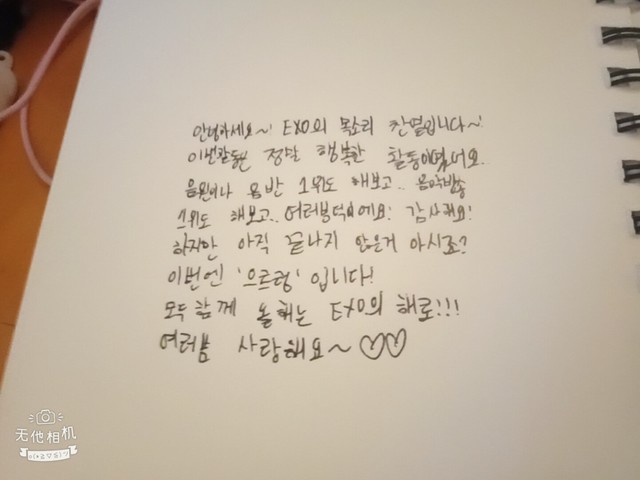 안녕하세요~! EXO의 목소리 찬열입니다~!
이번활동은 정말 행복한 활동이었어요.
음원이나 음반 1위도 해보고.. 음악방송
1위도 해보고.. 여러분덕이에요! 감사해요!
하지만 아직 끝나지 않은거 아시죠?
이번엔 '으르렁' 입니다!
모두 함께 올해는 EXO의 해로!!!
여러분 사랑해요~ ♡♡
无他相机